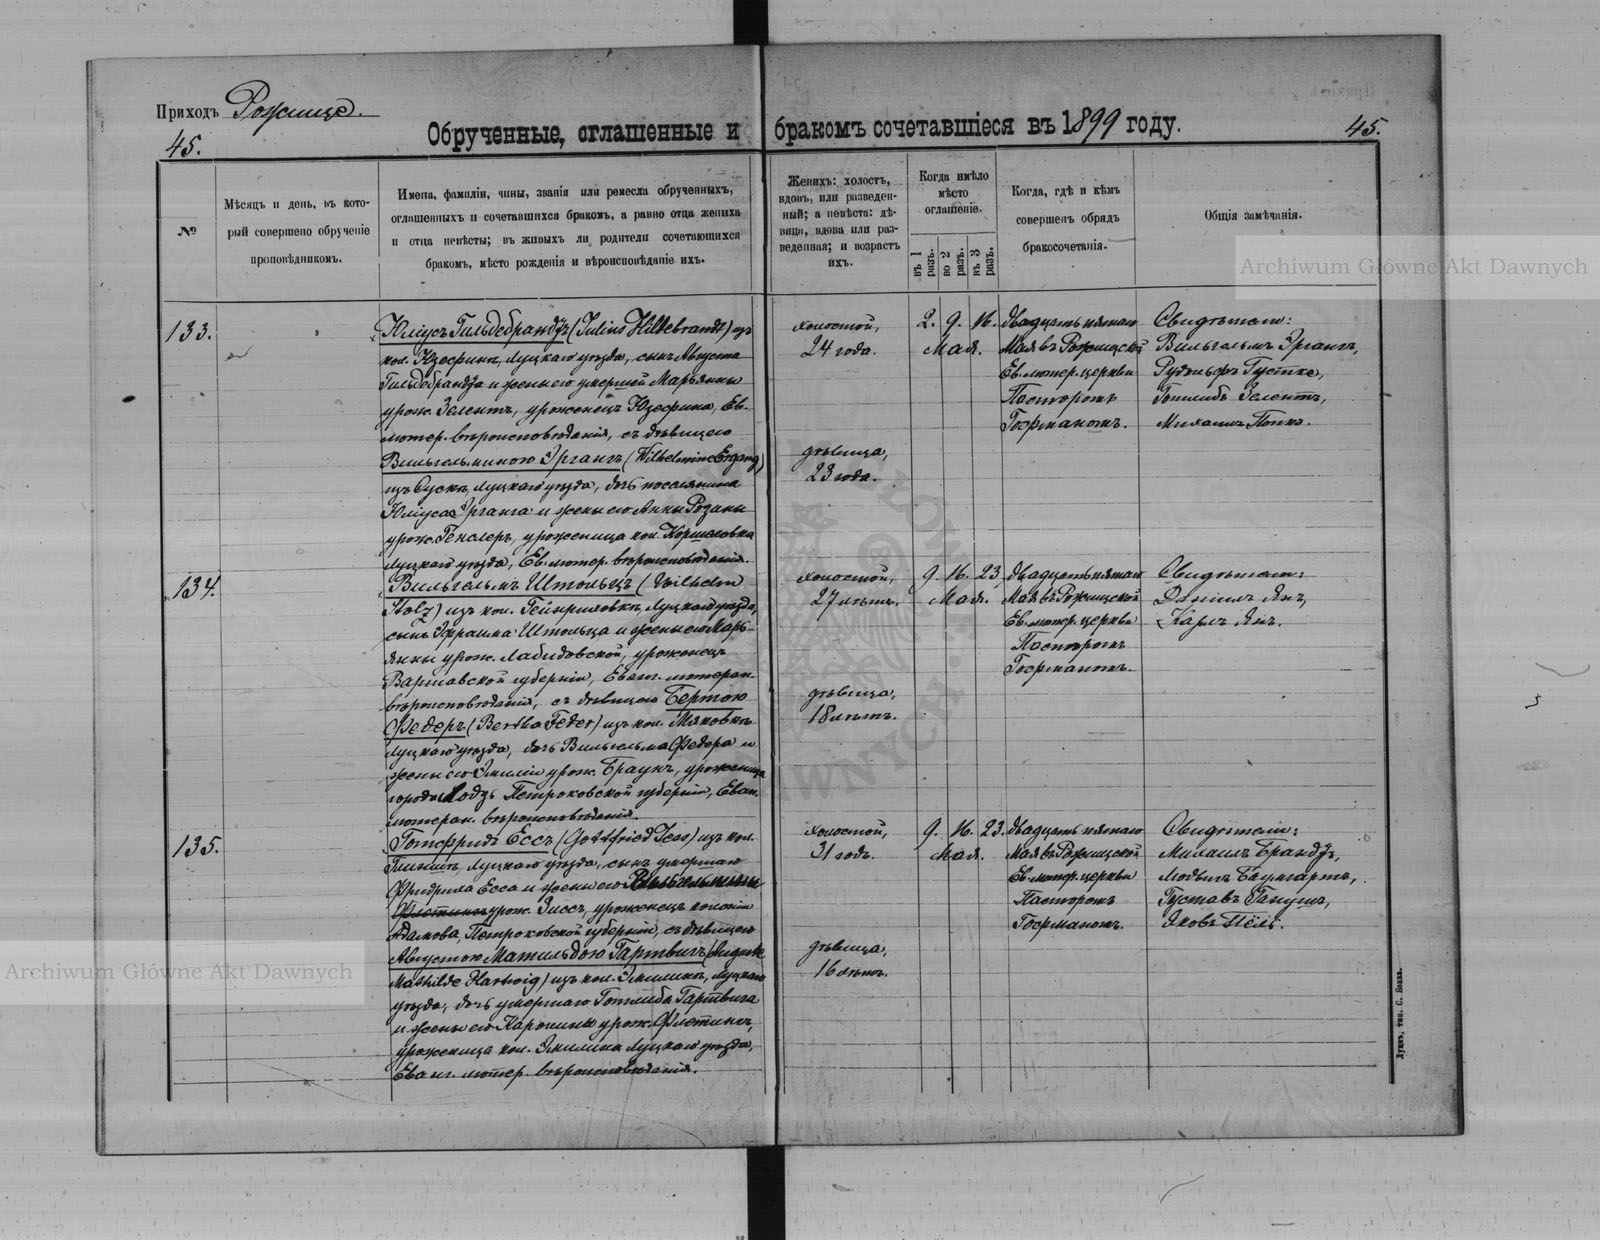 Приходъ Рожище.
45.
45.
Обрученные, оглашенные и бракомъ сочетавшіеся въ 1899 году.
№
Мѣсяцъ и день, въ кото-
рый совершено обрученіе
проповѣдникомъ.
Имена, фамиліи, чины, званія или ремесла обрученныхъ,
оглашенныхъ и сочетавшихся бракомъ, а равно отца жениха
и отца невѣсты; въ живыхъ ли родители сочетающихся
бракомъ, мѣсто рожденія и вѣроисповѣданіе ихъ.
Женихъ: холостъ,
вдовъ, или разведен-
ный; а невѣста: дѣ-
вица, вдова или раз-
веденная; и возрастъ
ихъ.
Когда имѣло
мѣсто
оглашеніе.
въ 1 разъ.
во 2 разъ.
въ 3 разъ.
Когда, гдѣ и кѣмъ
совершенъ обрядъ
бракосочетанія.
Общія замѣчанія.
133.
Юліусъ Гильдебрандтъ (Julius Hildebrandt) изъ
кол. Юзефинъ, Луцкаго уѣзда, сынъ Августа
Гильдебрандта и жены его умершей Марьянны
урож. Зелентъ, уроженецъ Юзефина, Ев.-
лютер. вѣроисповѣданія, съ дѣвицею
Вильгельминою Эргангъ (Wilhelmine Ergang)
изъ Суска, Луцкаго уѣзда, дочь поселянина
Юліуса Эрганга и жены его Анны Розины
урож. Генслеръ, уроженица кол. Коршаговка
Луцкаго уѣзда, Ев. лютер. вѣроисповѣданія.
холостой,
24 года.
дѣвица,
23 года.
2. 9. 16.
Мая.
двадцать пятаго
Мая въ Рожищской
Ев. лютер. церкви
Пасторомъ
Гофманомъ.
Свидѣтели:
Вильгельмъ Эргангъ,
Рудольфъ Густке,
Готлибъ Зелентъ,
Михаилъ Попка.
134.
Вильгельмъ Штольцъ (Wilhelm
Stolz) изъ кол. Гейнриховка, Луцкаго уѣзда,
сынъ Эфраима Штольца и жены его Марь-
янны урож. Лабидовской, уроженецъ
Варшавской губерніи, Еванг. лютеран.
вѣроисповѣданія, съ дѣвицею Бертою
Федеръ (Bertha Feder) изъ кол. Маковка
Луцкаго уѣзда, дочь Вильгельма Федера и
жены его Эмиліи урож. Браунъ, уроженица
города Лодзь Петроковской губерніи, Еван.
лютеран. вѣроисповѣданія.
холостой,
27 лѣтъ.
дѣвица,
18 лѣтъ.
9. 16. 23
Мая.
двадцать пятаго
Мая въ Рожищской
Ев. лютер. церкви
Пасторомъ
Гофманомъ.
Свидѣтели:
Даніилъ Янъ,
Карлъ Янъ.
135.
Готфридъ Ессъ (Gottfried Jess) изъ кол.
Луцкаго уѣзда, сынъ умершаго
Фридриха Есса и жены его Вильгельмины
урож. Зиссъ, уроженецъ колоніи
Адамова, Петроковской губерніи, съ дѣвицею
Августою Матильдою Гартвигъ (Auguste
Mathilde Hartwig) изъ кол. Эмилинъ, Луцкаго
уѣзда, дочь умершаго Готлиба Гартвига
и жены его Каролины урож. Флетингъ,
уроженица кол. Эмилина Луцкаго уѣзда,
Еванг. лютер. вѣроисповѣданія.
холостой,
31 годъ.
дѣвица,
16 лѣтъ.
9. 16. 23.
Мая.
двадцать пятаго
Мая въ Рожищской
Ев. лютер. церкви
Пасторомъ
Гофманомъ.
Свидѣтели:
Михаилъ Брандтъ,
Людвигъ Баумгартъ,
Густавъ Ганушъ,
Яковъ Пель.
Луцкъ, тип. С. Бокка.
Archiwum Główne Akt Dawnych
Archiwum Główne Akt Dawnych